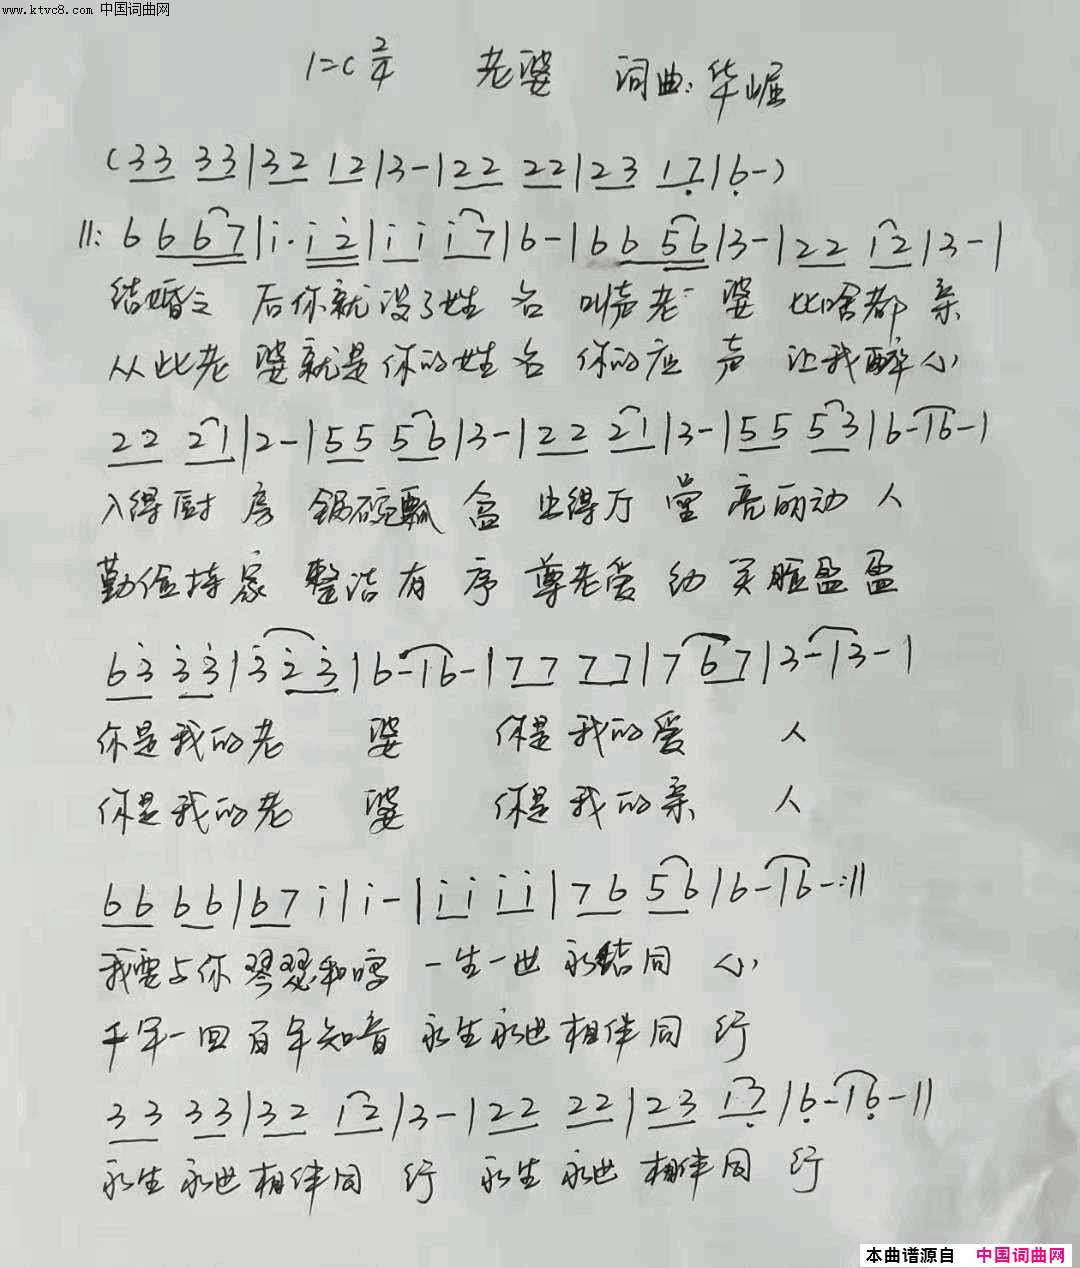 www.ktvc8.com 中国词曲网
1=C 2/4 老婆 词曲:华崛
(33 33|32 12|3-|22 22|23 17|6-)
||: 6 6 67|i· i2|i i i7|6-|66 56|3-|22 12|3-|
结婚之 后你就没了姓 名 叫声老 婆 比啥都 亲
从此老 婆就是你的姓 名 你的应 声 让我醉 心
22 21|2-|55 56|3-|22 21|3-|55 53|6-|6-|
入得厨 房 锅碗瓢 盆 出得厅 堂 亮丽动 人
勤俭持 家 整洁有 序 尊老爱 幼 笑脸盈 盈
63 33|3 23|6-|6-|77 77|7 67|3-|3-|
你是我的老 婆 你是我的爱 人
你是我的老 婆 你是我的亲 人
66 66|67 i|i-|ii ii|76 56|6-|6-:||
我要与你琴瑟和鸣 一生一世永结同 心
千年一回百年知音 永生永世相伴同 行
33 33|32 12|3-|22 22|23 17|6-|6-||
永生永世相伴同 行 永生永世 相伴同 行
本曲谱源自 中国词曲网